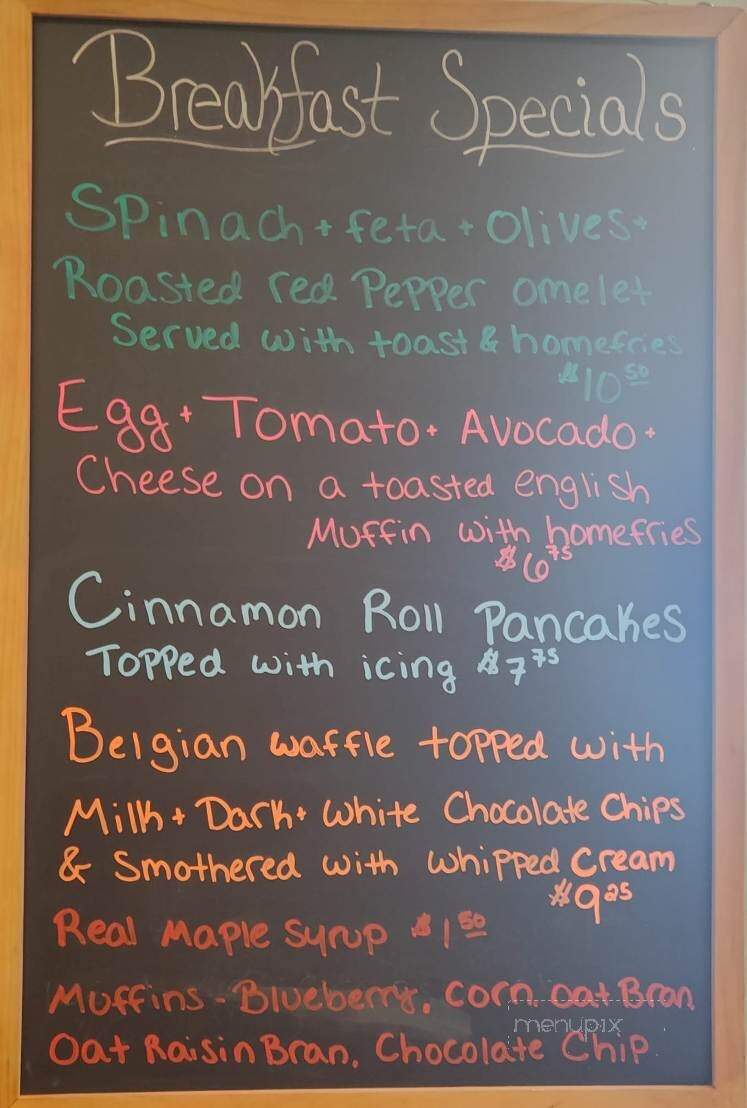 Breakfast Specials
Spinach + feta + Olives +
Roasted red Pepper omelet
Served with toast & homefries
$10 50
Egg + Tomato + Avocado +
Cheese on a toasted english
Muffin with homefries
$6 75
Cinnamon Roll Pancakes
Topped with icing $7 75
Belgian waffle topped with
Milk + Dark + White Chocolate Chips
& Smothered with whipped Cream
$9 25
Real Maple Syrup $1 50
Muffins - Blueberry, Corn, Oat Bran
menupix
Oat Raisin Bran, Chocolate Chip